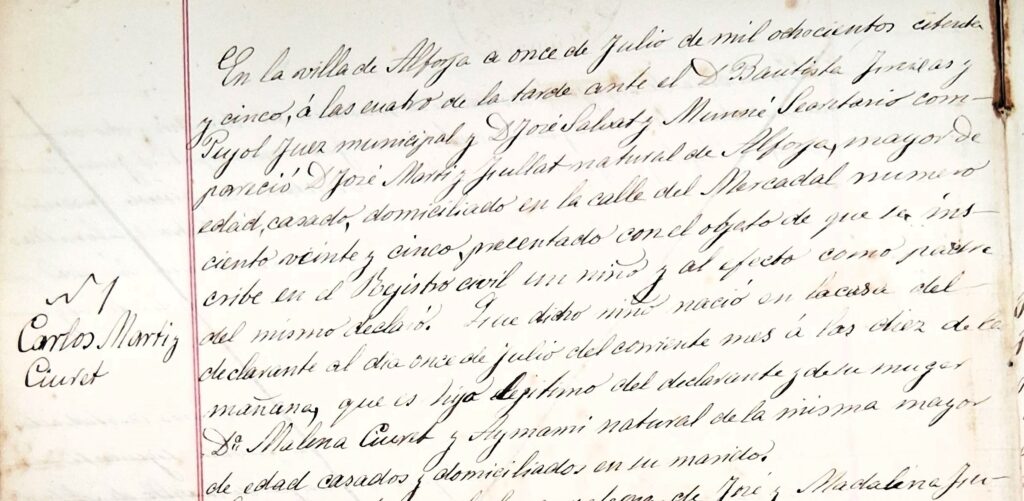 Nº 1
Carlos Marti y
Ciuret
En la villa de Alforja a once de Julio de mil ochocientos citenta
y cinco, á las cuatro de la tarde ante el D. Bautista y
Pujol Juez municipal y D. José Salvat y Munné Secretario com-
pareció D. José Marti y Fullat natural de Alforja, mayor de
edad, casado, domiciliado en la calle del Mercadal numero
ciento veinte y cinco, precentado con el objeto de que se ins-
cribe en el Registro civil un niño y al efecto como padre
del mismo declaró. Que dicho niño nació en la casa del
declarante al dia once de julio del corriente mes á las diez de la
mañana, que es hijo legitimo del declarante y de su muger
Dª Malena Ciuret y Aymami natural de la misma mayor
de edad casados y domiciliados en su marido.
de José y Madalena